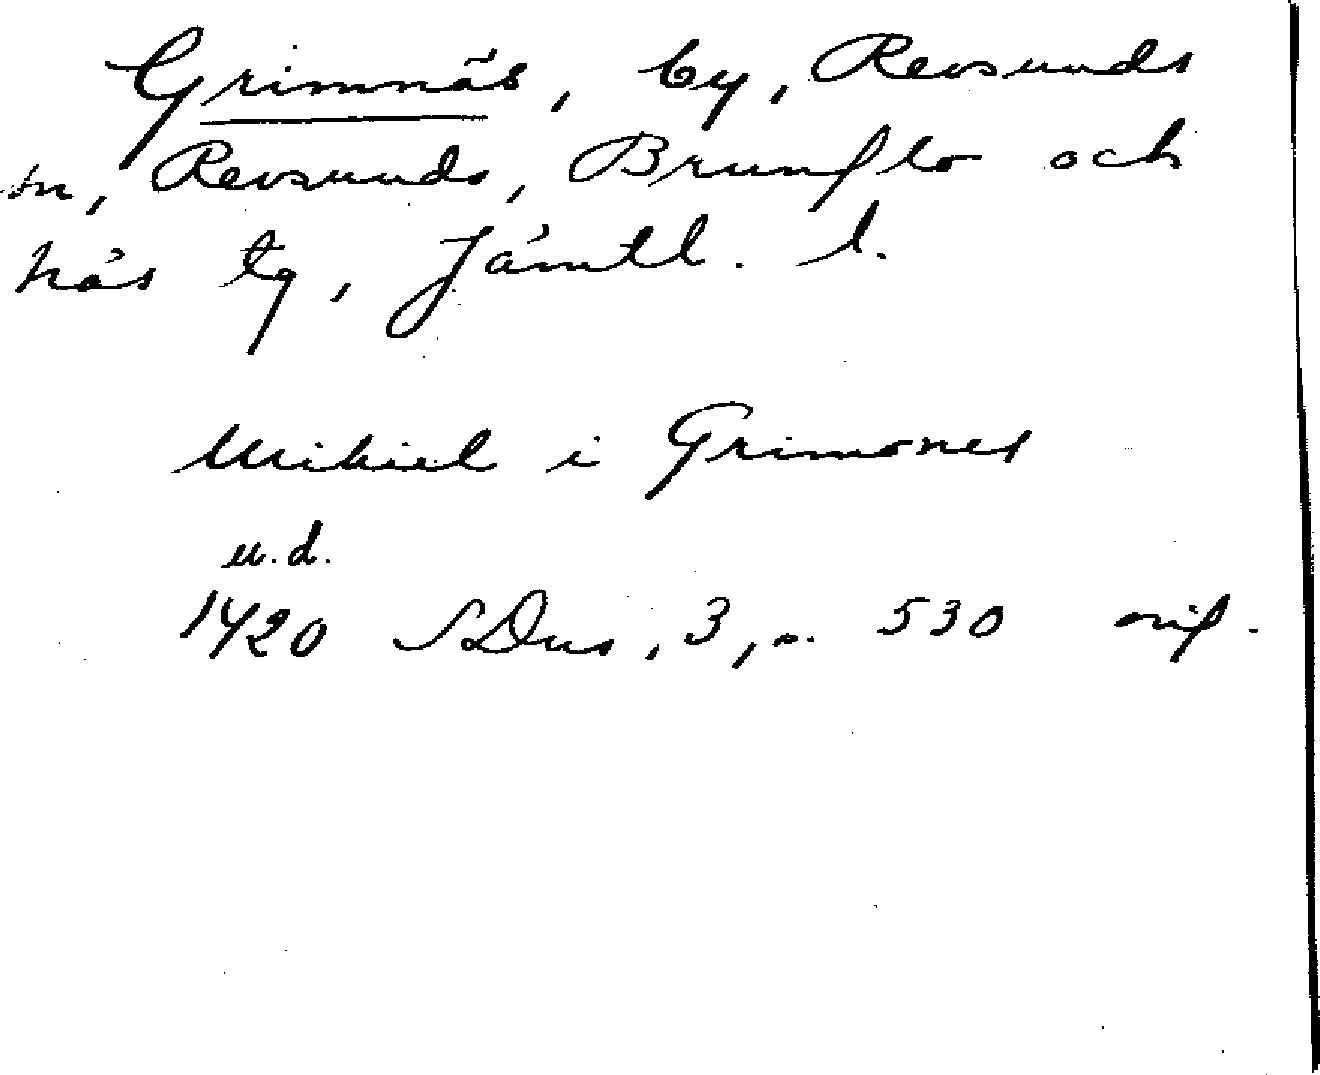 Grimnäs, by, Revsunds
sn, Revsunds, Brunflo och
Näs tg, Jämtl. l.
Mikiel i Grimones
u.d.
1420 SDns, 3, s. 530 orig.